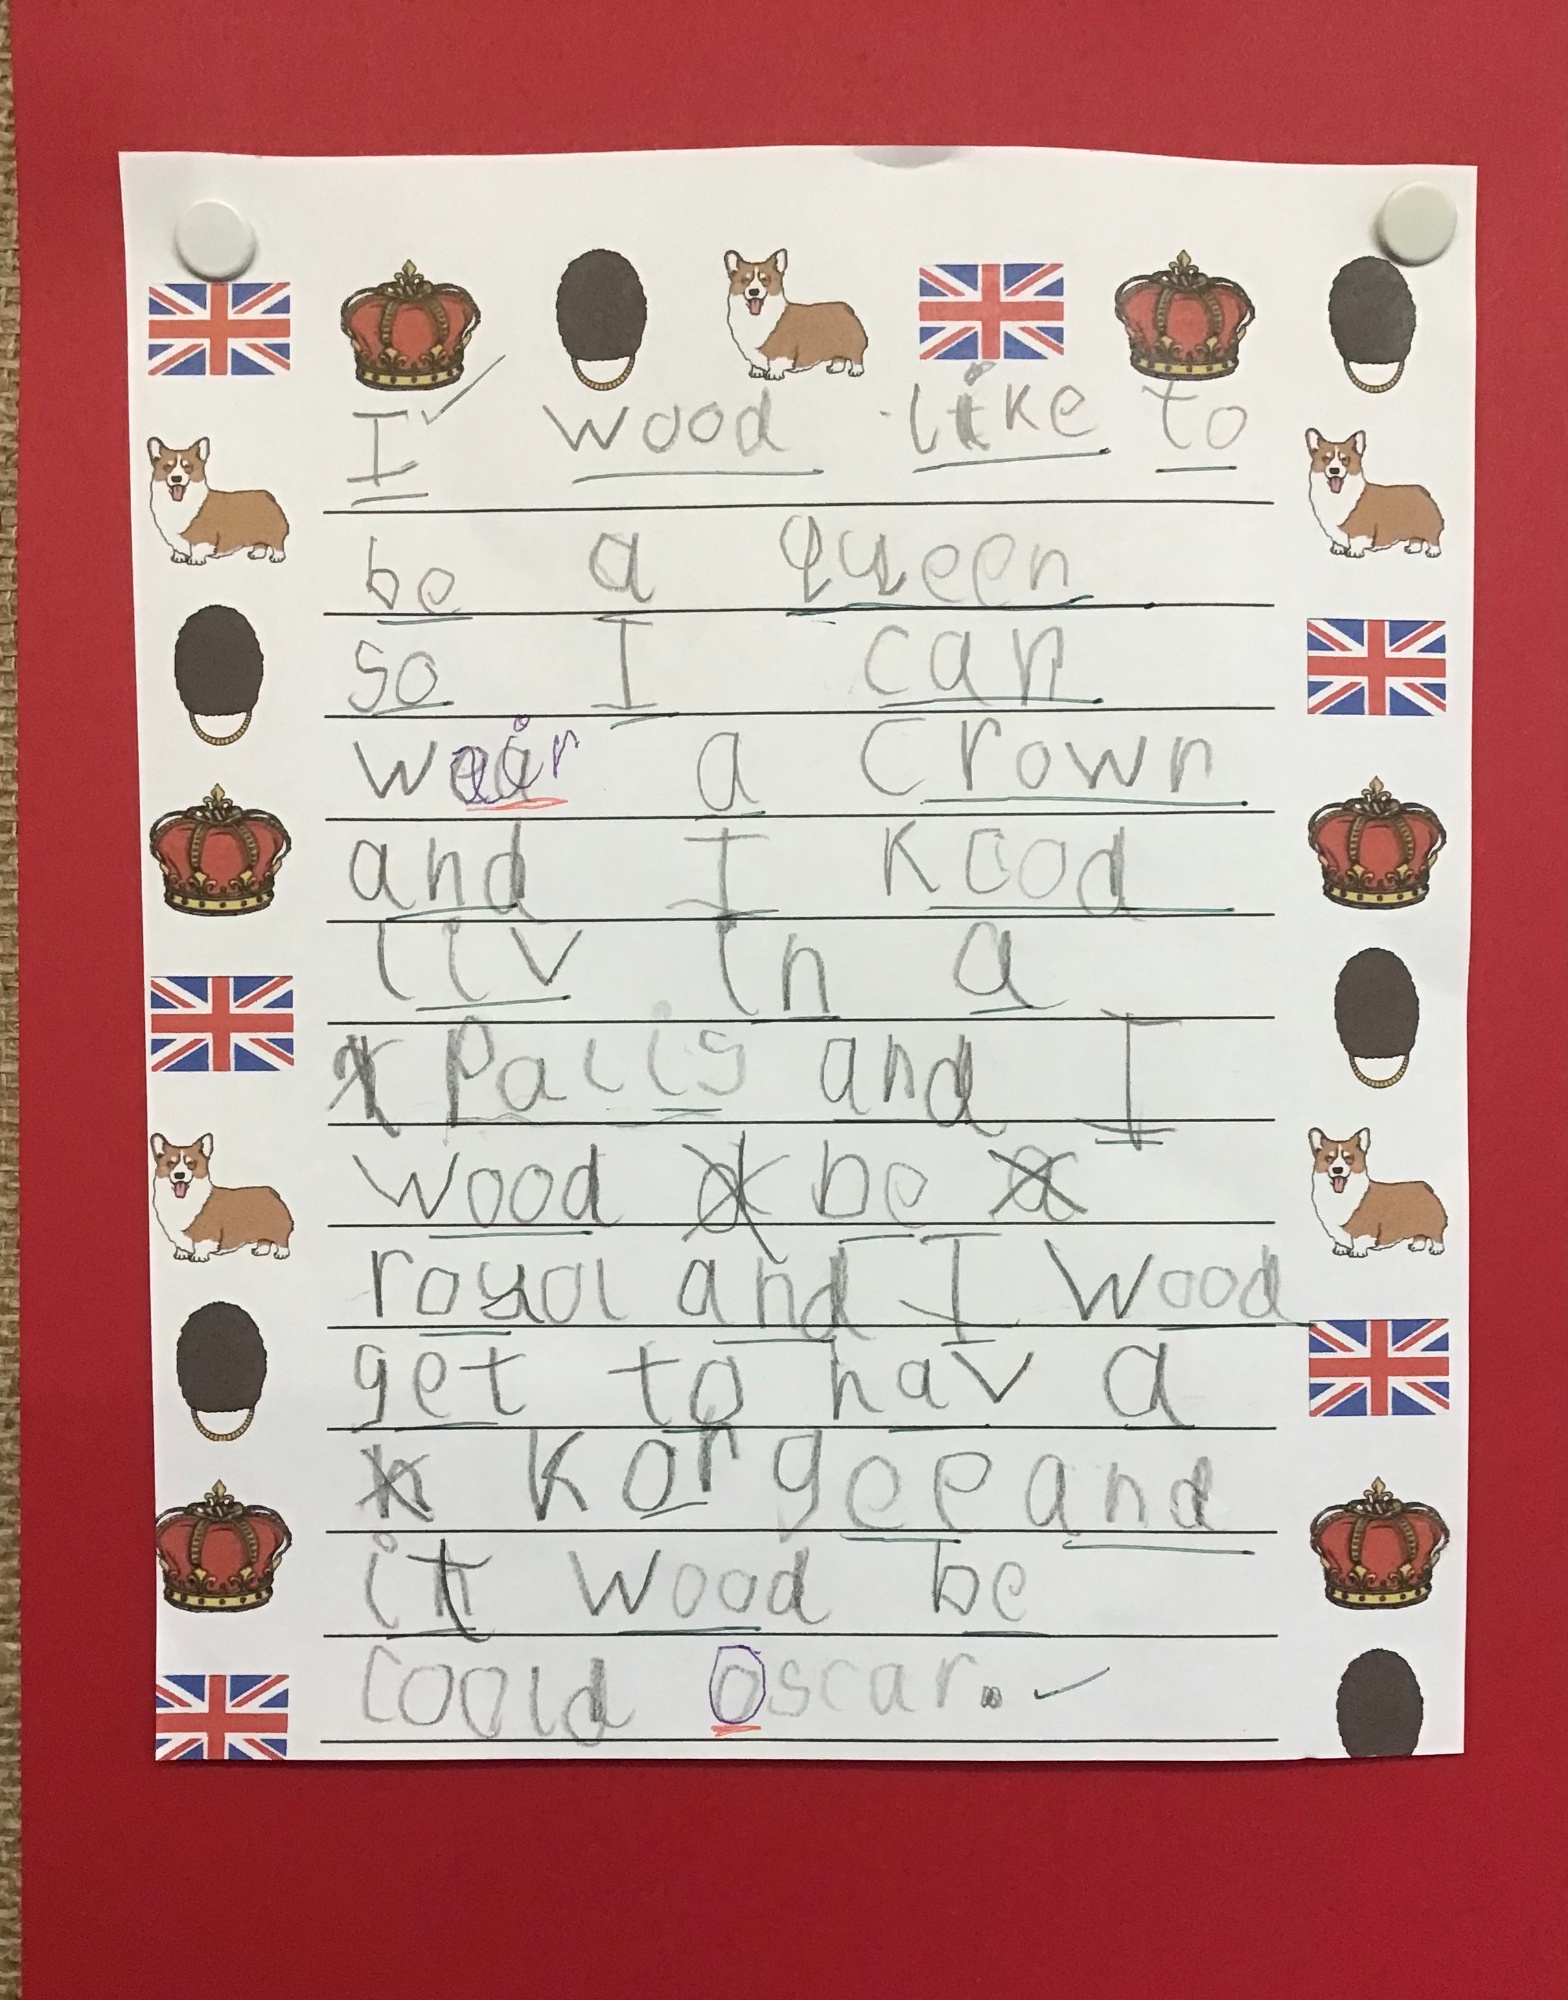 I wood like to
be a queen
so I can
wair a crown
and I Kood
liv in a
palis and I
wood be
royal and I wood
get to hav a
Korgee and
it wood be
coold Oscar.